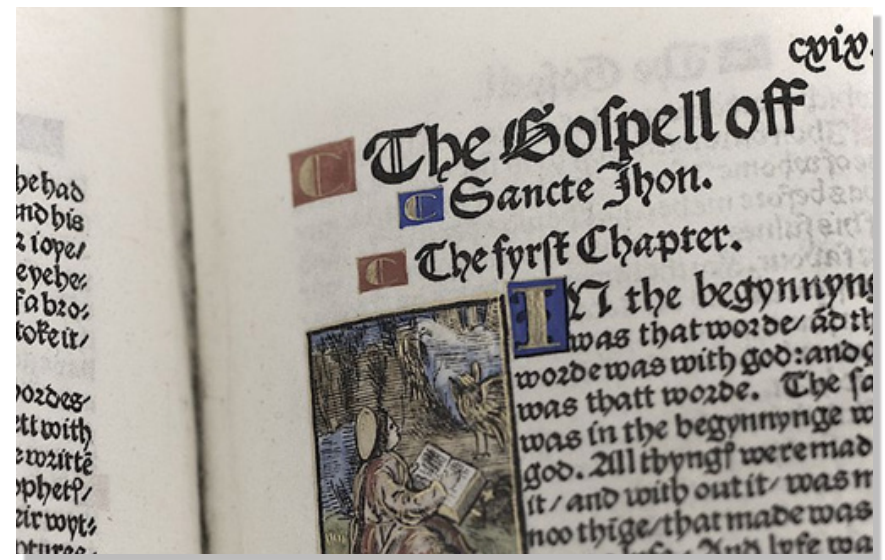 he had
nd his
⁊ ioye/
eyehe:
f a bro:
toke it/
wordes/
ett with
e writtē
ophetꝭ/
eir wyt:
ntures
cxix.
C The Goſpell off
C Sancte Jhon.
C The fyrſt Chapter.
IN the begynnyn
was that worde/ ād th
worde was with god: and g
was thatt worde. The ſa
was in the begynnynge w
god. All thyngꝭ were mad
it/ and with out it/ was m
noo thige/ that made was
And lyfe wa